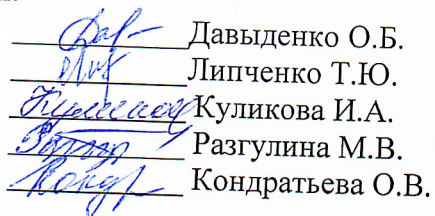 Давыденко О.Б.
Липченко Т.Ю.
Куликова И.А.
Разгулина М.В.
Кондратьева О.В.